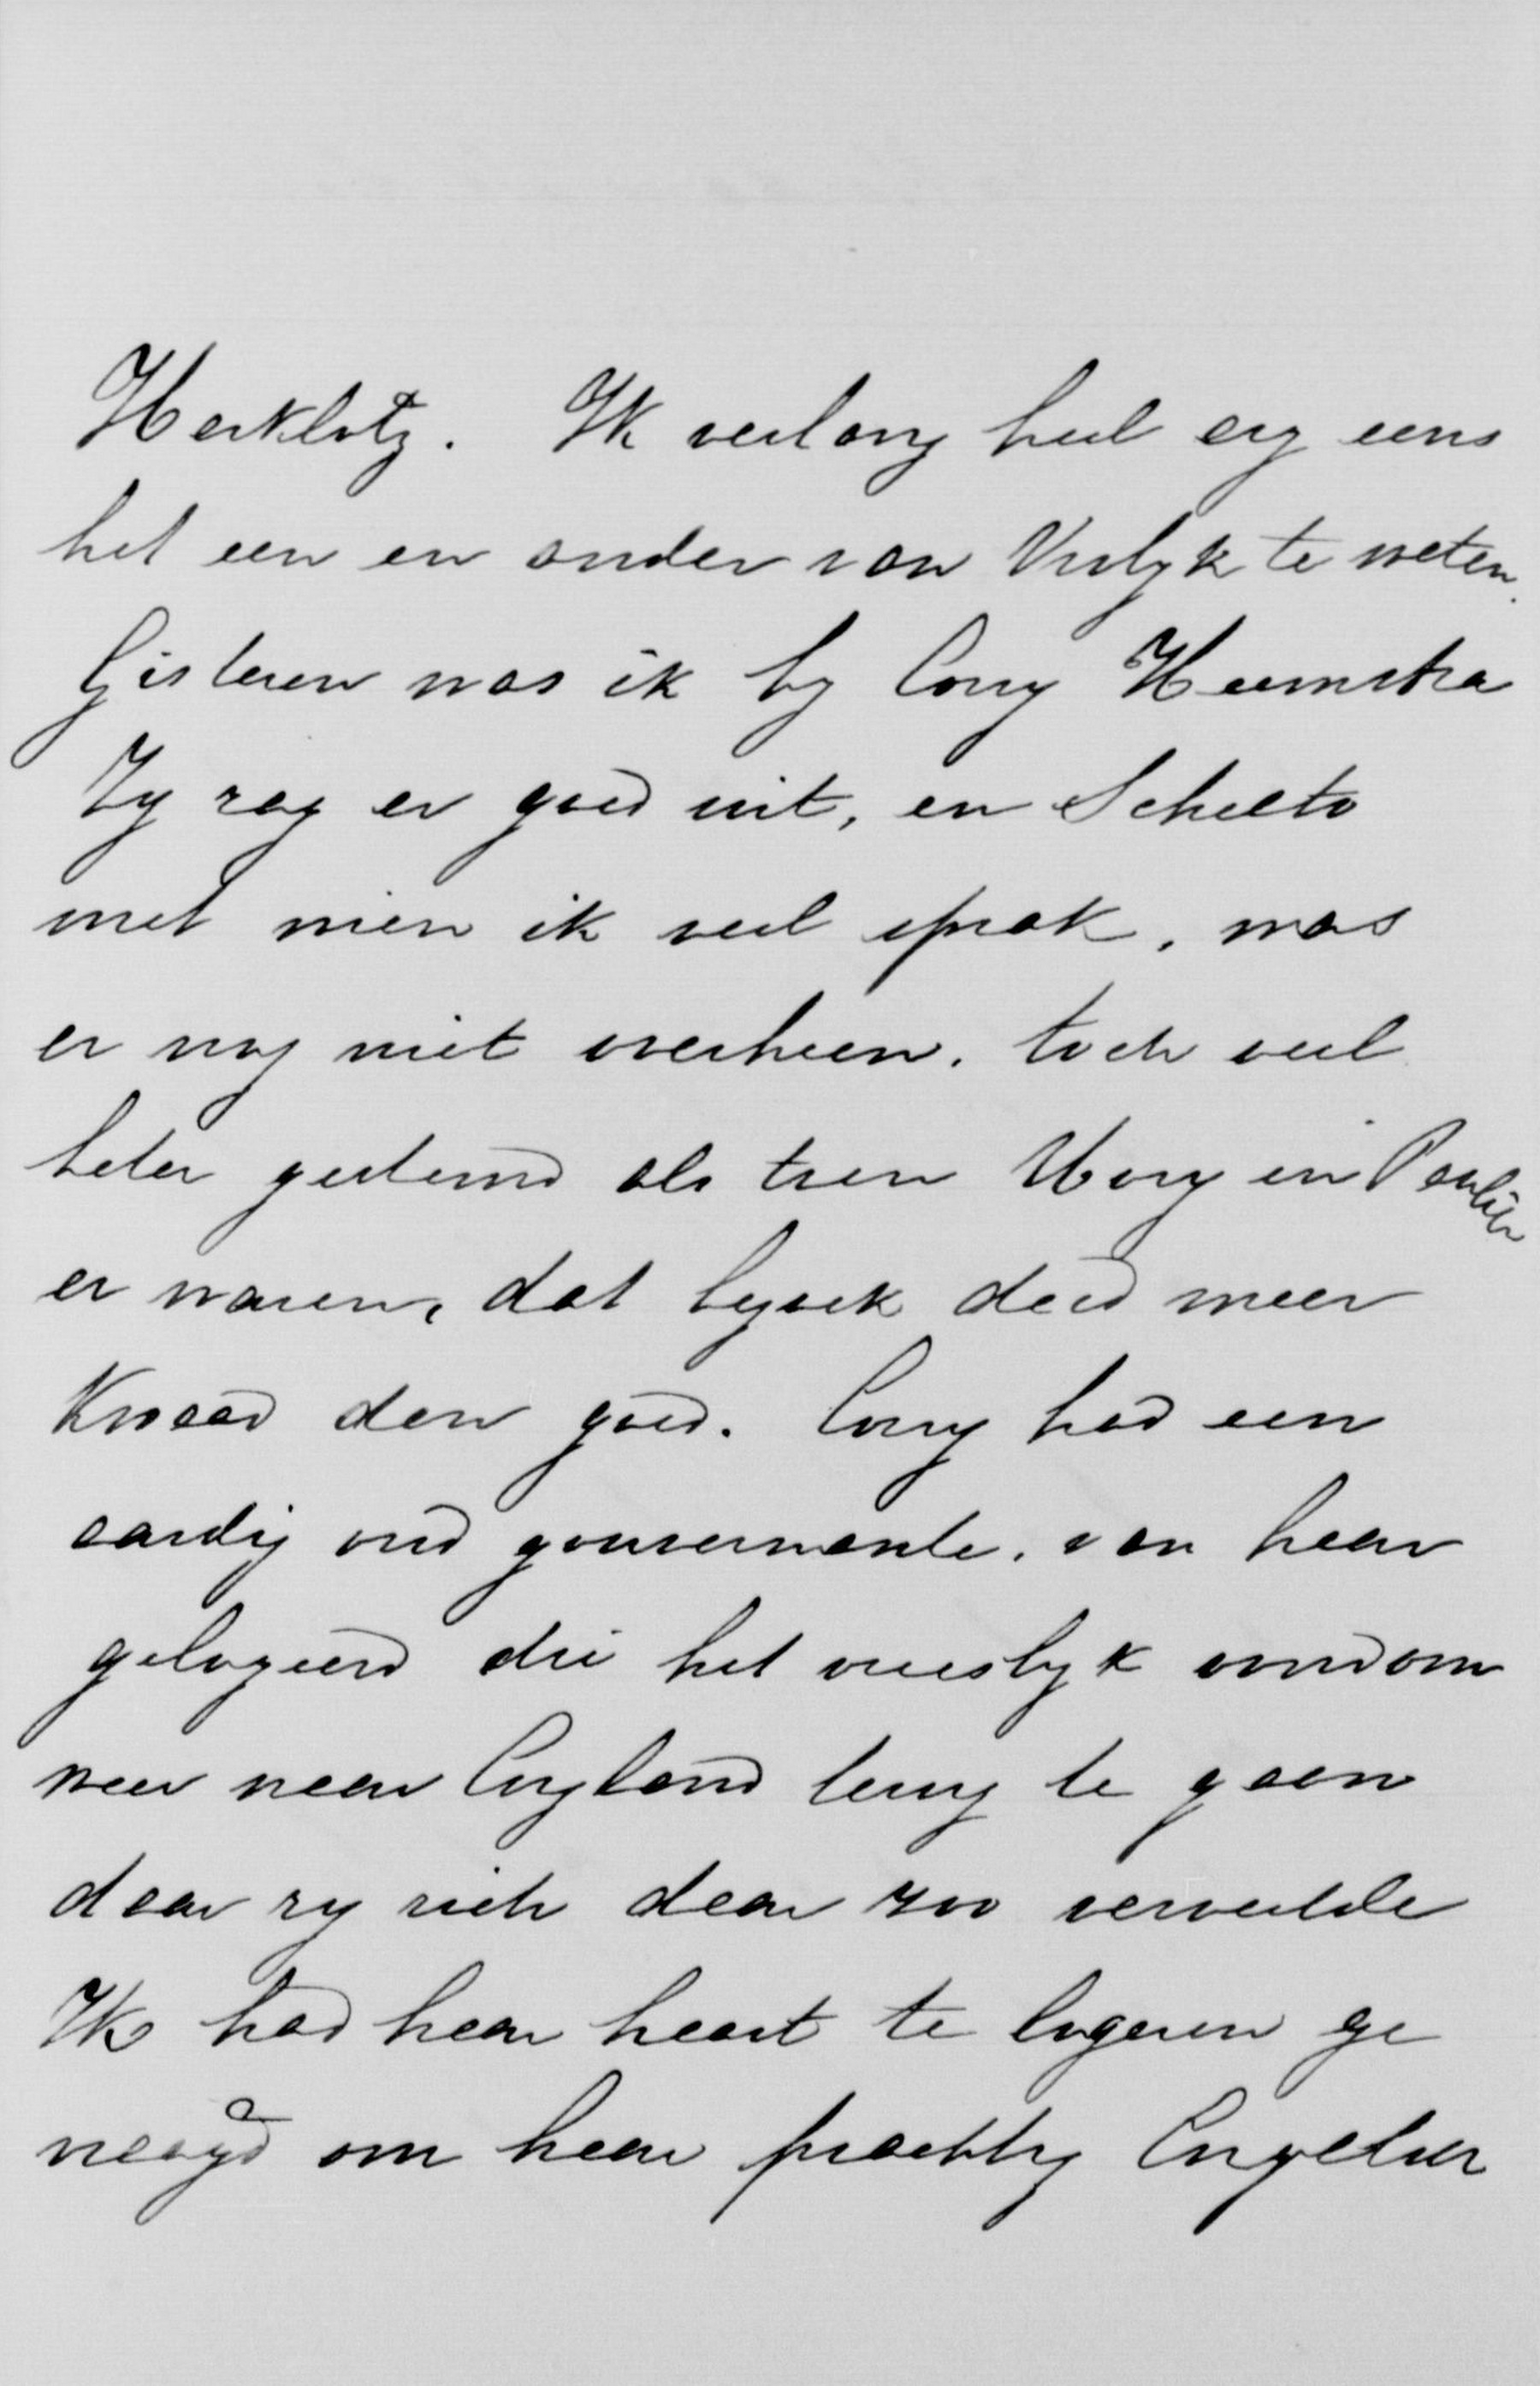 Herklotz. Ik verlang heel erg eens
het een en ander van te weten.
Gisteren was ik by Corry Heemstra
Zy zag er goed uit, en Schelto
met wien ik veel sprak, was
er nog niet overheen. toch veel
beter gestemd als toen en
er waren, dat bezoek deed meer
Kwaad dan goed. Corry had een
aardig oud gouvernante. van haar
gelogeerd die het vreeslyk vond om
weer naar Engeland terug te gaan
daar zy zich daar zoo verveelde
Ik had haar haast te logeren ge
naagd om haar prachtig Engelsch